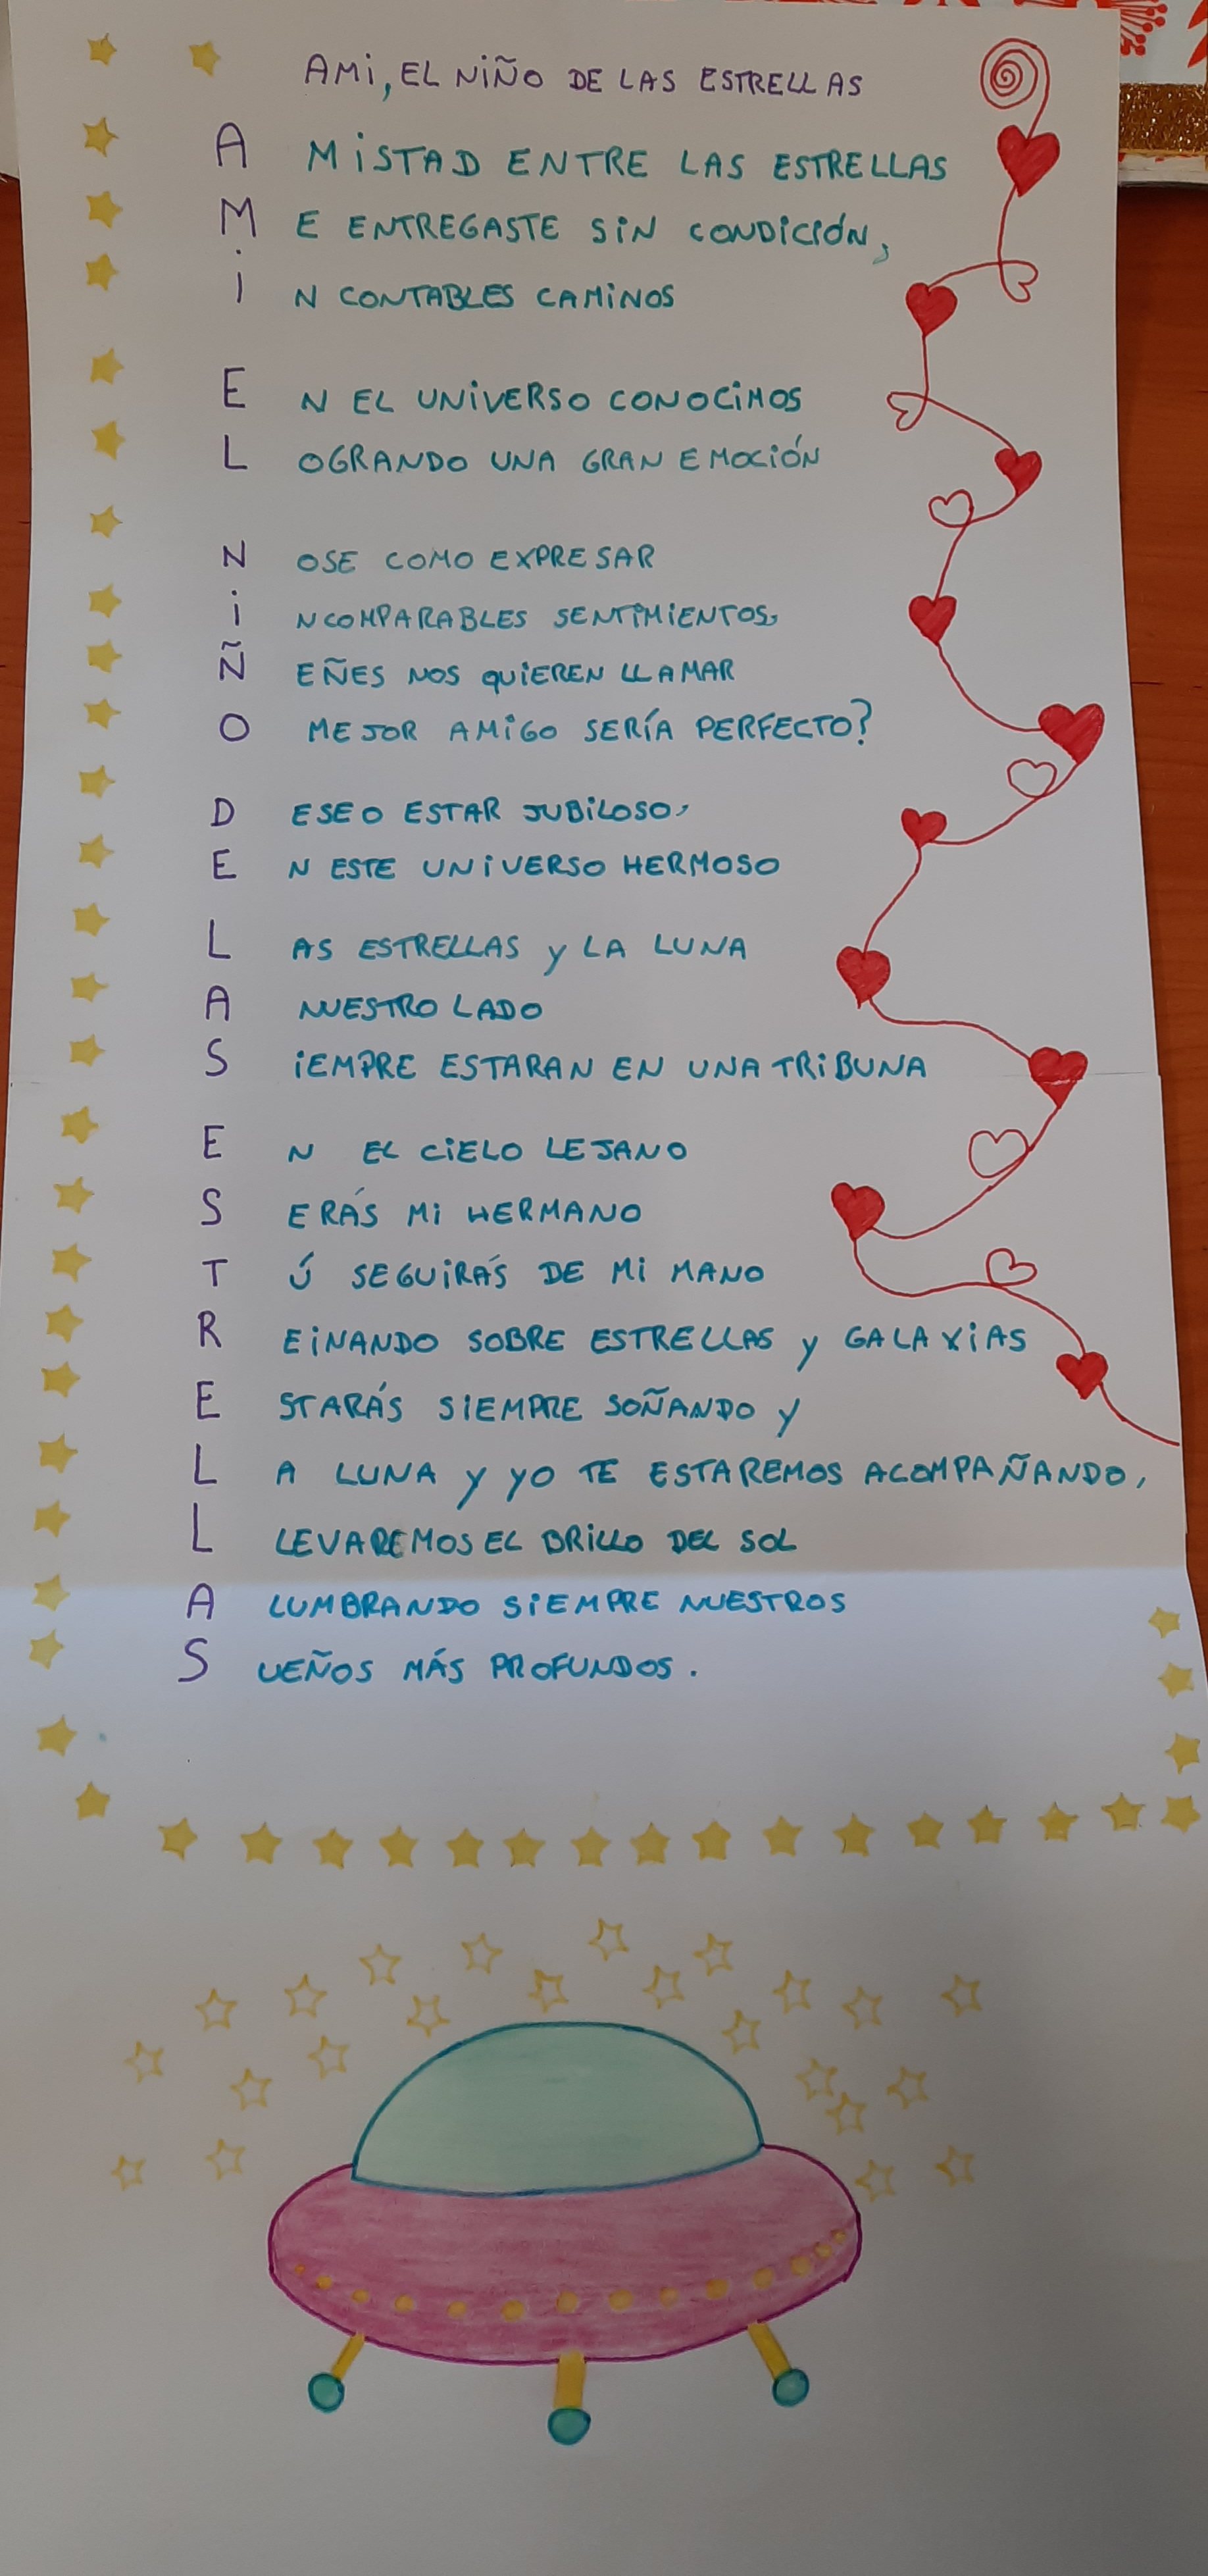 AMI, EL NIÑO DE LAS ESTRELLAS
A MISTAD ENTRE LAS ESTRELLAS
M E ENTREGASTE SIN CONDICIÓN,
I N CONTABLES CAMINOS
E N EL UNIVERSO CONOCIMOS
L OGRANDO UNA GRAN EMOCIÓN
N OSE COMO EXPRESAR
I NCOMPARABLES SENTIMIENTOS,
Ñ EÑES NOS QUIEREN LLAMAR
O MEJOR AMIGO SERÍA PERFECTO?
D ESEO ESTAR JUBILOSO,
E N ESTE UNIVERSO HERMOSO
L AS ESTRELLAS Y LA LUNA
A NUESTRO LADO
S IEMPRE ESTARAN EN UNA TRIBUNA
E N EL CIELO LEJANO
S ERÁS MI HERMANO
T Ú SEGUIRÁS DE MI MANO
R EINANDO SOBRE ESTRELLAS Y GALAXIAS
E STARÁS SIEMPRE SOÑANDO Y
L A LUNA Y YO TE ESTAREMOS ACOMPAÑANDO,
L LEVAREMOS EL BRILLO DEL SOL
A LUMBRANDO SIEMPRE NUESTROS
S UEÑOS MÁS PROFUNDOS.